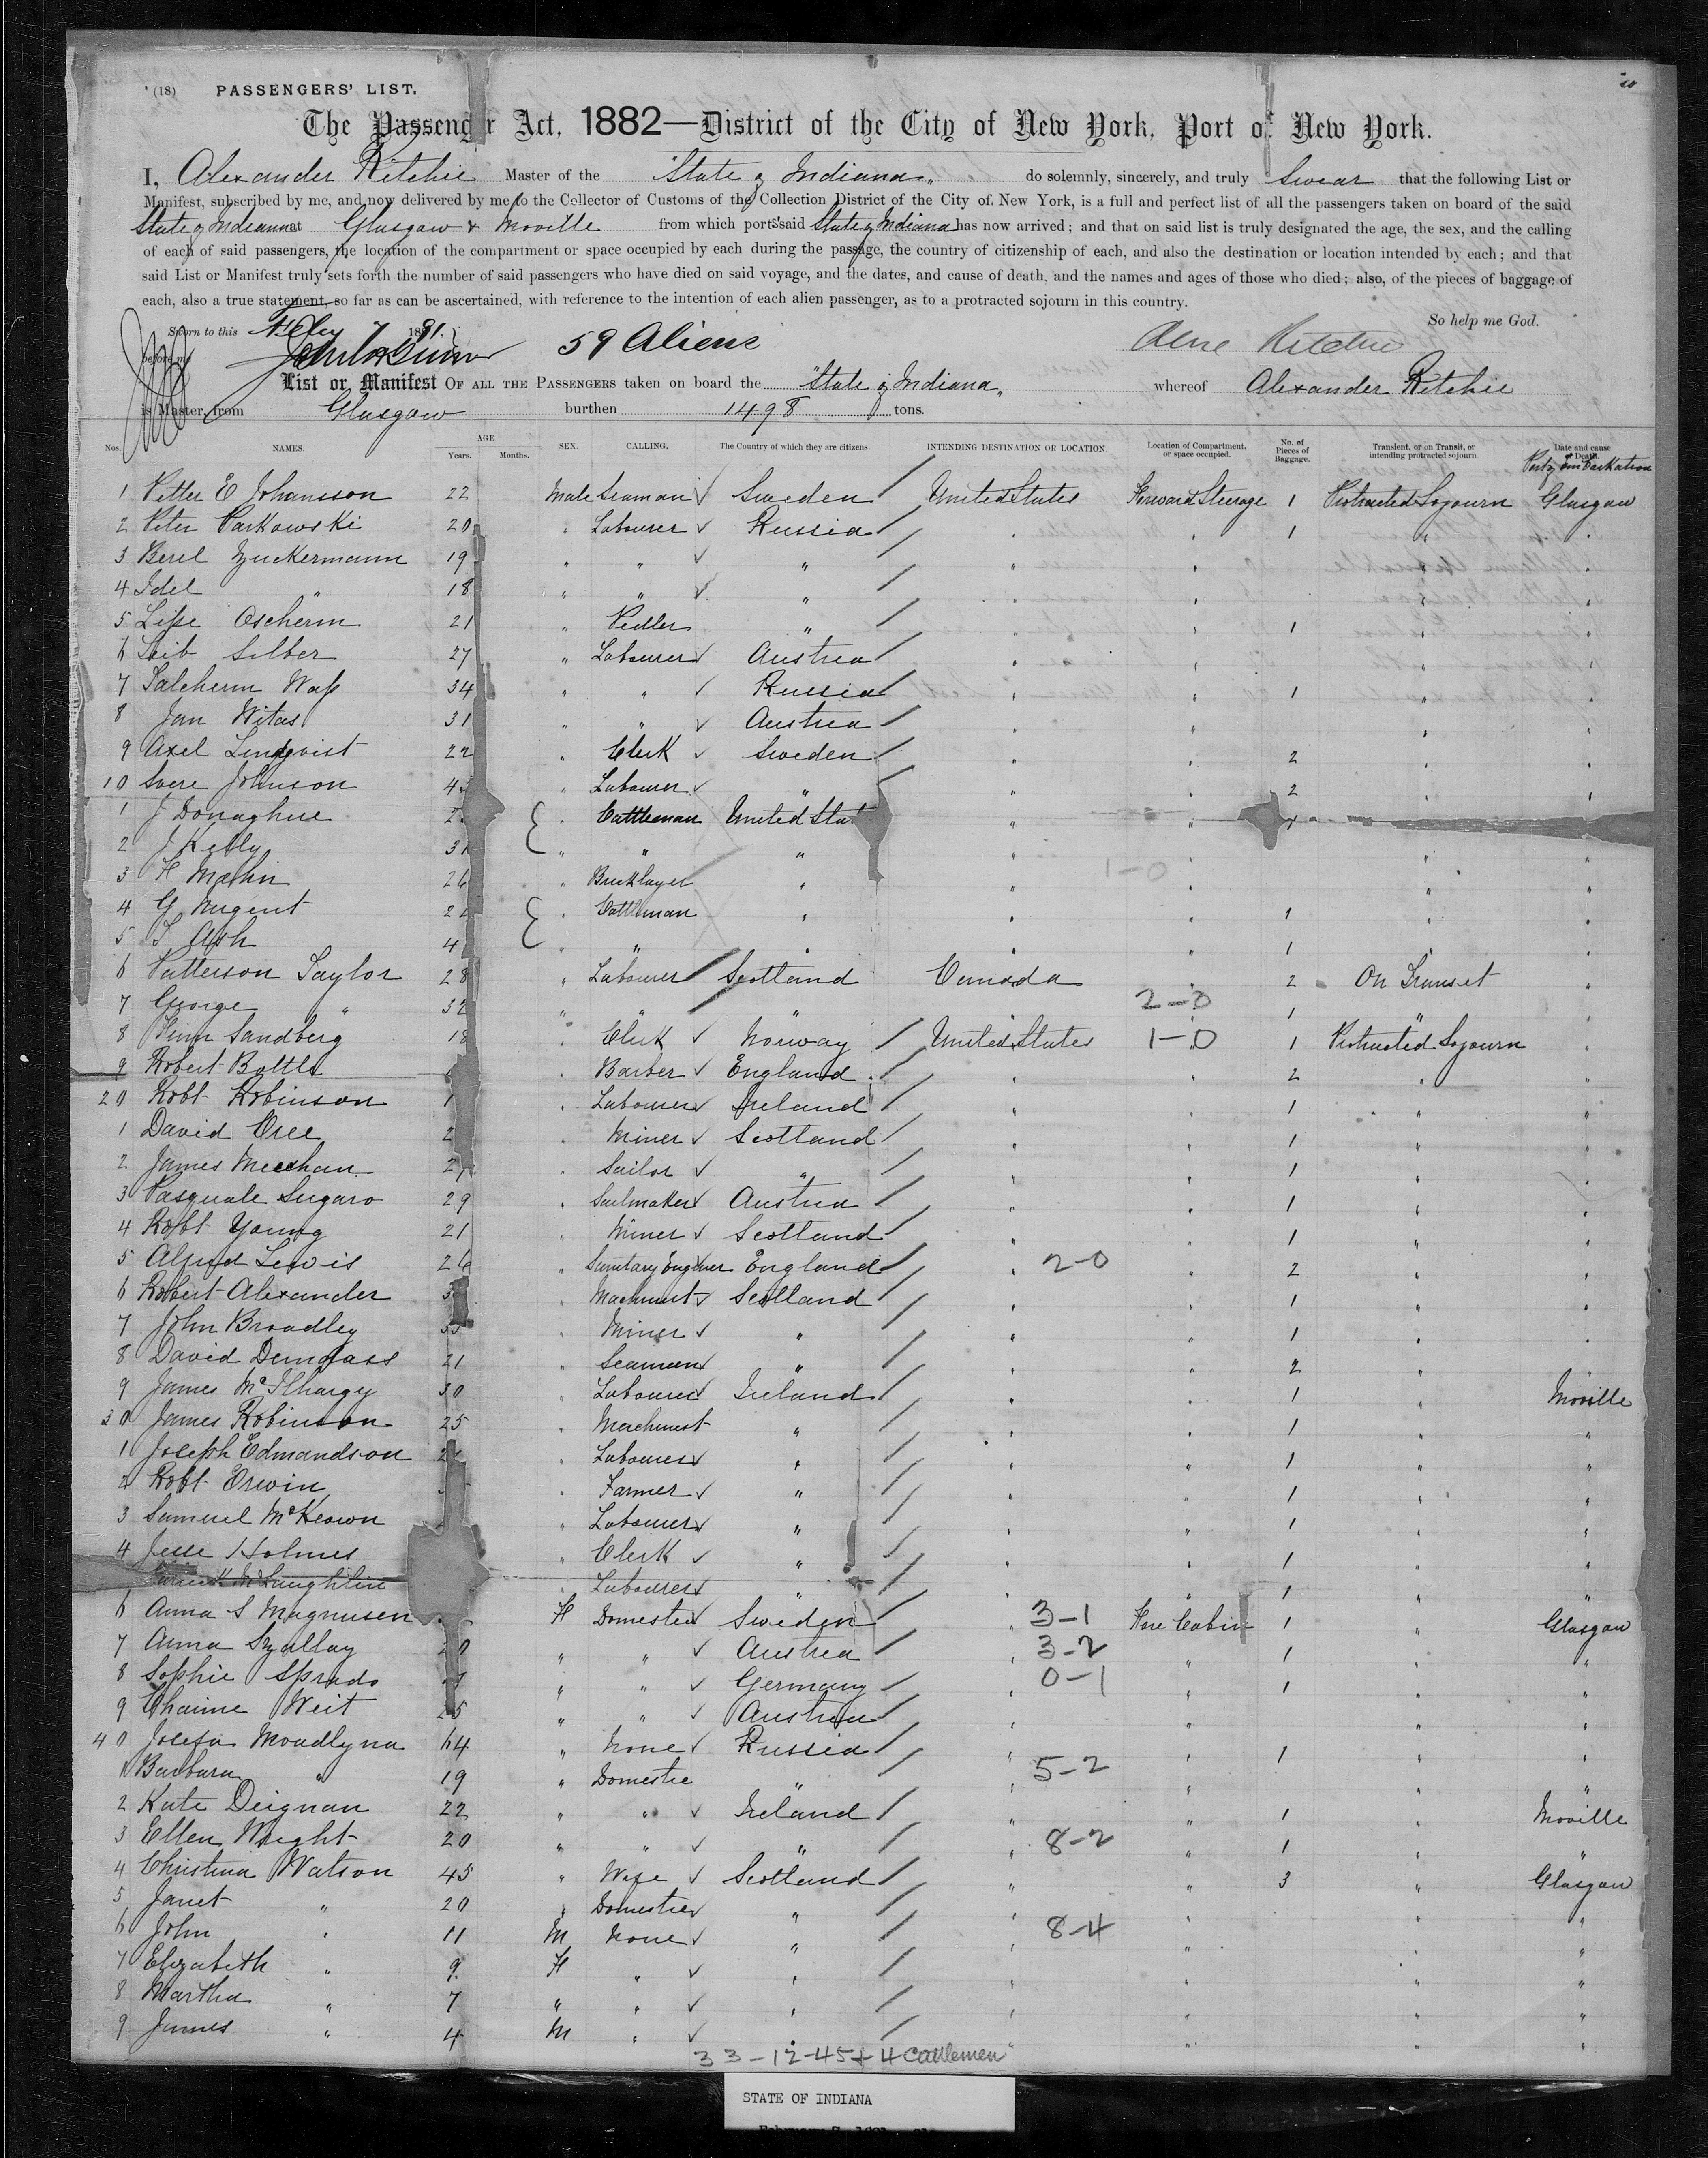 (18) PASSENGERS' LIST.
The Passenger Act, 1882—District of the City of New York, Port of New York.
I, Alexander Ritchie Master of the "State of Indiana" do solemnly, sincerely, and truly Swear that the following List or
Manifest, subscribed by me, and now delivered by me to the Collector of Customs of the Collection District of the City of New York, is a full and perfect list of all the passengers taken on board of the said
State of Indiana at Glasgow & Moville from which ports said State of Indiana has now arrived; and that on said list is truly designated the age, the sex, and the calling
of each of said passengers, the location of the compartment or space occupied by each during the passage, the country of citizenship of each, and also the destination or location intended by each; and that
said List or Manifest truly sets forth the number of said passengers who have died on said voyage, and the dates, and cause of death, and the names and ages of those who died; also, of the pieces of baggage of
each, also a true statement, so far as can be ascertained, with reference to the intention of each alien passenger, as to a protracted sojourn in this country.
So help me God.
Sworn to this Feby 7 1891
before me 59 Aliens Alexr Ritchie
List or Manifest OF ALL THE PASSENGERS taken on board the "State of Indiana" whereof Alexander Ritchie
is Master, from Glasgow burthen 1498 tons.
Nos. NAMES. AGE Years. Months. SEX. CALLING. The Country of which they are citizens. INTENDING DESTINATION OR LOCATION. Location of Compartment, or space occupied. No. of Pieces of Baggage. Transient, or on Transit, or intending protracted sojourn Date and cause of Death. Port of Embarkation
1 Petter E Johansson 22 Male Seaman Sweden United States Forward Steerage 1 Protracted Sojourn Glasgow
2 Peter Parkowski 20 " Labourer Russia " " 1 " "
3 Berel Zuckermann 19 " " " " " " "
4 Idel " 18 " " " " " " "
5 Lipe Ascherm 21 " Pedler " " " 1 " "
6 Leib Silber 27 " Labourer Austria " " " "
7 Salcherm Wass 34 " " Russia " " 1 " "
8 Jan Witas 31 " " Austria " " " "
9 Axel Lindqvist 22 " Clerk Sweden " " 2 " "
10 Svere Johnson " Labourer " " " 2 " "
1 J Donaghue " Cattleman United Stat " " " "
2 J Kelly 31 " " " " " " "
3 H Mathin 26 " Bricklayer " " 1-0 " " "
4 G Nugent " Cattleman " " " 1 " "
5 T Ash " " " " " 1 " "
6 Patterson Taylor 28 " Labourer Scotland Canada " 2 On Transit "
7 George " 32 " " " " 2-0 " 1 " "
8 Finn Sandberg 18 " Clerk Norway United States 1-0 " 1 Protracted Sojourn "
9 Robert Battle " Barber England " " 2 " "
20 Robt Robinson " Labourer Ireland " " 1 " "
1 David Cree " Miner Scotland " " 1 " "
2 James Meechan " Sailor " " " 1 " "
3 Pasquale Sugaro 29 " Sailmaker Austria " " 1 " "
4 Robt Young 21 " Miner Scotland " " 1 " "
5 Alfred Lewis 26 " Sanitary Engineer England " 2-0 " 2 " "
6 Robert Alexander " Machinist Scotland " " 1 " "
7 John Broadley " Miner " " " 1 " "
8 David 21 " Seaman " " " 2 " "
9 James McIlhargy 30 " Labourer Ireland " " 1 " Moville
30 James Robinson 25 " Machinist " " " 1 " "
1 Joseph Edmandson " Labourer " " " 1 " "
2 Robt Erwin " Farmer " " " 1 " "
3 Samuel McKeown " Labourer " " " 1 " "
4 Jesse Holmes " Clerk " " " 1 " "
McLaughlin " Labourer " " " 1 " "
6 Anna S Magnusen F Domestic Sweden " 3-1 Fore Cabin 1 " Glasgow
7 Anna Szallay 20 " " Austria " 3-2 " 1 " "
8 Sophie Sprado " " Germany " 0-1 " 1 " "
9 Chaime Weit 25 " " Austria " " " "
40 Josefa Moadlyna 64 " None Russia " " 1 " "
1 Barbara " 19 " Domestic " " 5-2 " " "
2 Kate Deignan 22 " " Ireland " " 1 " Moville
3 Ellen Wright 20 " " " " 8-2 " 1 " "
4 Christina Watson 45 " Wife Scotland " " 3 " Glasgow
5 Janet " 20 " Domestic " " " " "
6 John " 11 M None " " 8-4 " " "
7 Elizabeth " 9 F " " " " " "
8 Martha " 7 " " " " " " "
9 James " 4 M " " " " " "
33-12-45+4 Cattlemen
STATE OF INDIANA